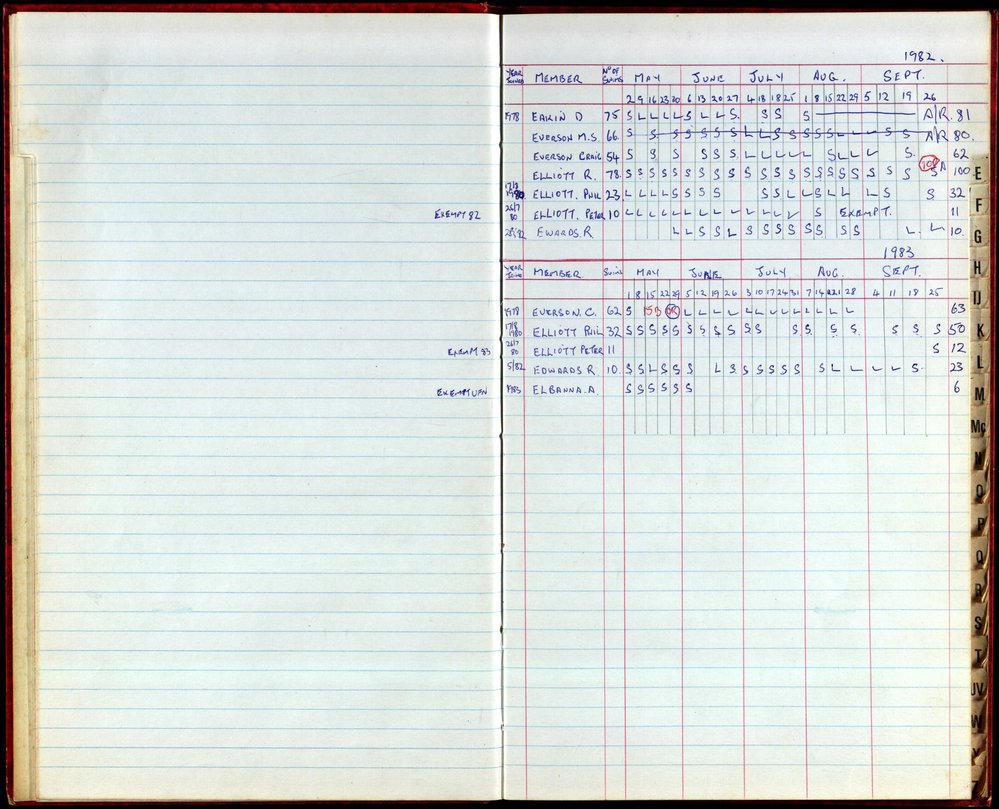 1982.
YEAR JOINED MEMBER Nº OF SWIMS MAY JUNE JULY AUG. SEPT.
2 9 16 23 30 6 13 20 27 4 18 25 1 8 15 22 29 5 12 19 26
1978 EAKIN D 75 S L L L L S L L S. S S S A/R. 81
EVERSON M.S. 66. S S S S S S S L L S S S S S L L L S S A/R 80.
EVERSON CRAIG 54 S S S S S S L L L L L S L L L S. 62
ELLIOTT R. 78. S S S S S S S S S S S S S S S S S S S S S 100 A 100
17/8 1980 ELLIOTT. PHIL 23. L L L L S S S S S L L S L L L S S 32
EXEMPT 82 26/7 80 ELLIOTT. PETER 10 L L L L L L L L L L L L L S EXEMPT. 11
EWARDS. R L L S S L S S S S S S S S S L. L 10.
1983
YEAR JOINED MEMBER SWIMS MAY JUNE JULY AUG SEPT.
1 8 15 22 29 5 12 19 26 3 10 17 24 31 7 14 21 28 4 11 18 25
1978 EVERSON. C. 62 S L L L L L L L L L L L L L 63
17/8 1980 ELLIOTT PHIL 32 S S S S S S S S S S S S S S S S S S 50
EXEMPT 83 26/7 80 ELLIOTT PETER 11 S 12
5/82 EDWARDS R 10. S S L S S S L S S S S S S S L L L L S. 23
EXEMPT UFN 1983 ELBANNA. A S S S S S S 6
E
F
G
H
IJ
K
L
M
Mc
N
O
P
Q
R
S
T
UV
W
Y
Z